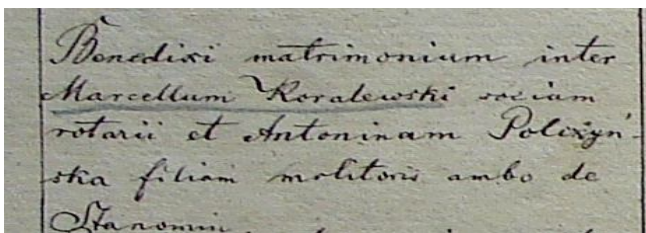 Benedixi matrimonium inter
Marcellum Koralewski sociam
rotarii et Antoninam Polixyń-
ska filiam molitoris ambo de
Stanomin